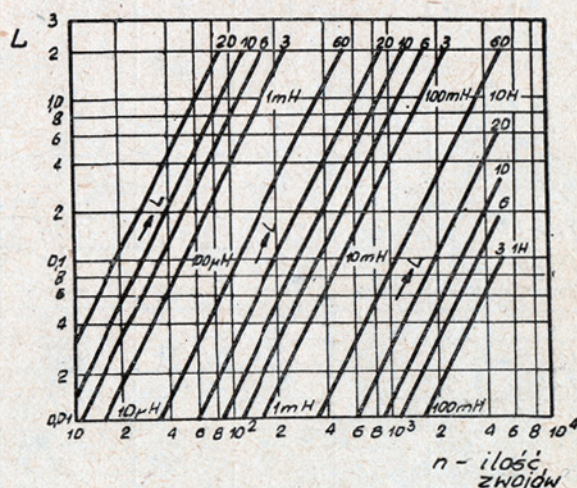 L
3
2
1,0
8
6
4
2
0,1
8
6
4
2
0,01
20 10 6 3 60 20 10 6 3 60
1mH 100mH 10H
20
10
6
3 1H
L L L
100µH 10mH
10µH 1mH 100mH
10 2 4 6 8 10² 2 4 6 8 10³ 2 4 6 8 10⁴
n - ilość
zwojów